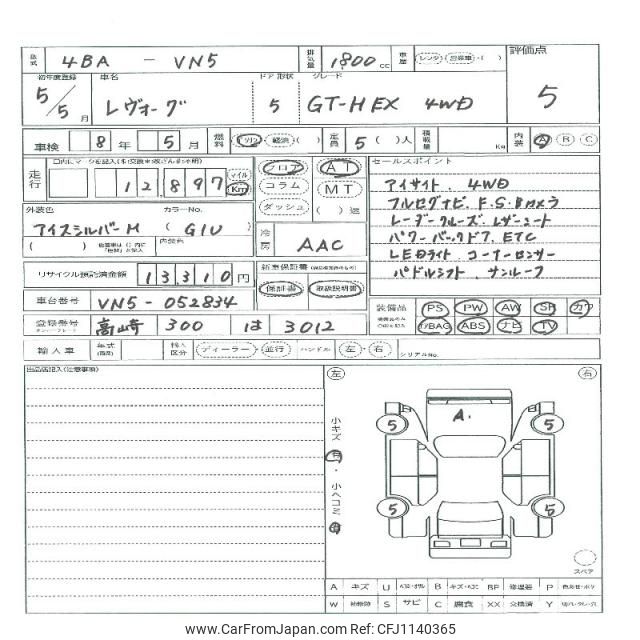 型式 4BA - VN5 排気量 1800 cc 車歴 レンタ・自家用・( ) 評価点
5
初年度登録 車名 ドア 形状 グレード
5/5月 レヴォーグ 5 GT-H EX 4WD
車検 8年 5月 燃料 ガソリン・軽油・( ) 定員 5( )人 積載量 Kg 内装 A B C
走行 12,897 マイル Km
フロア コラム ダッシュ
AT MT ( )速
セールスポイント
アイサイト 4WD
フルセグナビ F.S.Bカメラ
レーダークルーズ レザーシート
パワーバックドア ETC
LEDライト コーナーセンサー
パドルシフト サンルーフ
外装色 カラーNo.
アイスシルバーM (G1U)
( ) 内装色
冷房 AAC
リサイクル預託済金額 13,310円
新車保証書
保証書 取扱説明書
車台番号 VN5-052834
装備品 PS PW AW SR カワ
エアBAG ABS ナビ TV
登録番号 高崎 300 は 3012
輸入車 年式 輸入区分 ディーラー・並行 ハンドル 左・右 シリアルNo.
出品店記入(注意事項)
左 右
小キズ 有・小ヘコミ 有
A.
5 5
5 5
スペア
A キズ U B キズ・ヘコミ BP 修理要 P
W S サビ C 腐食 XX 交換済 Y
www.CarFromJapan.com - Ref CFJ1140365